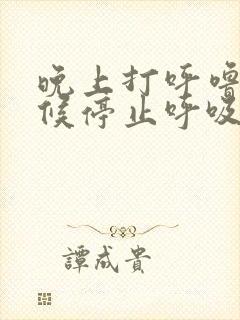 晚上打呼噜
候停止呼吸
譚成貴